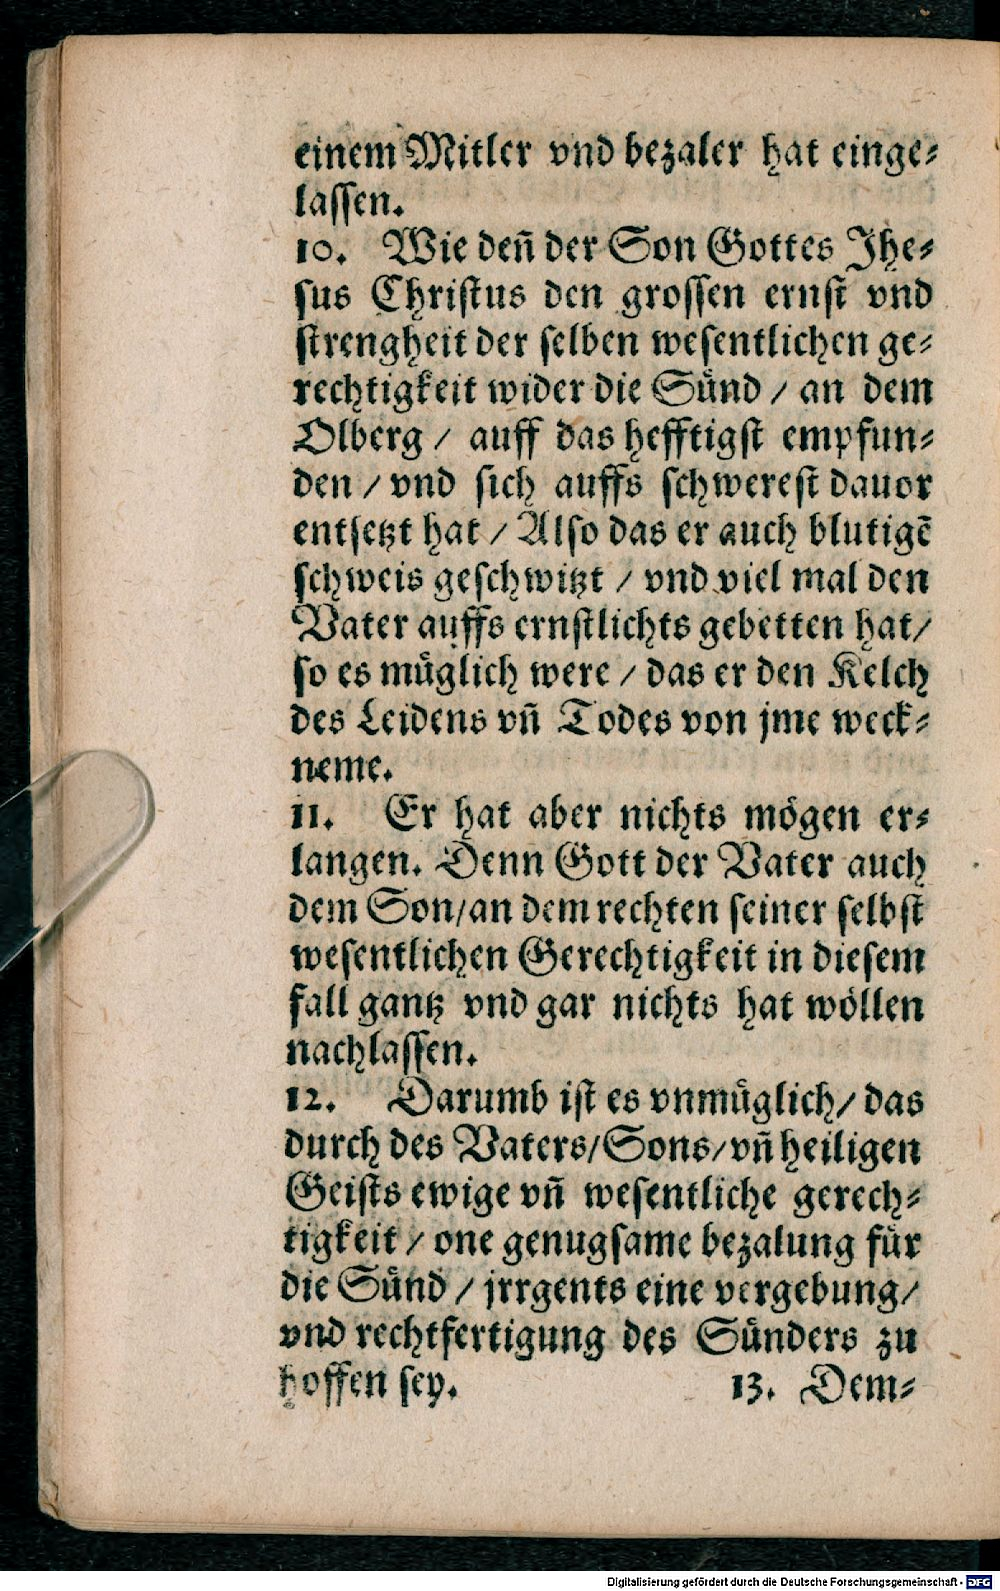 einem Mitler vnd bezaler hat einge⸗
lassen.
10. Wie deñ der Son Gottes Jhe⸗
sus Christus den grossen ernst vnd
strengheit der selben wesentlichen ge⸗
rechtigkeit wider die Sünd / an dem
Olberg / auff das hefftigst empfun⸗
den / vnd sich auffs schwerest dauor
entsetzt hat / Also das er auch blutigē
schweis geschwitzt / vnd viel mal den
Vater auffs ernstlichts gebetten hat/
so es müglich were / das er den Kelch
des Leidens vñ Todes von jme weck⸗
neme.
11. Er hat aber nichts mögen er⸗
langen. Denn Gott der Vater auch
dem Son/an dem rechten seiner selbst
wesentlichen Gerechtigkeit in diesem
fall gantz vnd gar nichts hat wöllen
nachlassen.
12. Darumb ist es vnmüglich/ das
durch des Vaters/Sons/vñ heiligen
Geists ewige vñ wesentliche gerech⸗
tigkeit / one genugsame bezalung für
die Sünd / jrrgents eine vergebung/
vnd rechtfertigung des Sünders zu
hoffen sey. 13. Dem⸗
Digitalisierung gefördert durch die Deutsche Forschungsgemeinschaft - DFG